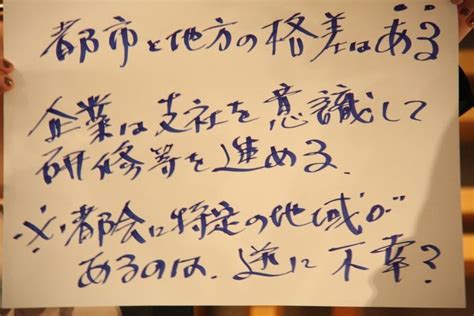 都市と地方の格差はある
企業は支社を意識して
研修等を進める.
※都会に特定の地域が
あるのは、逆に不幸?